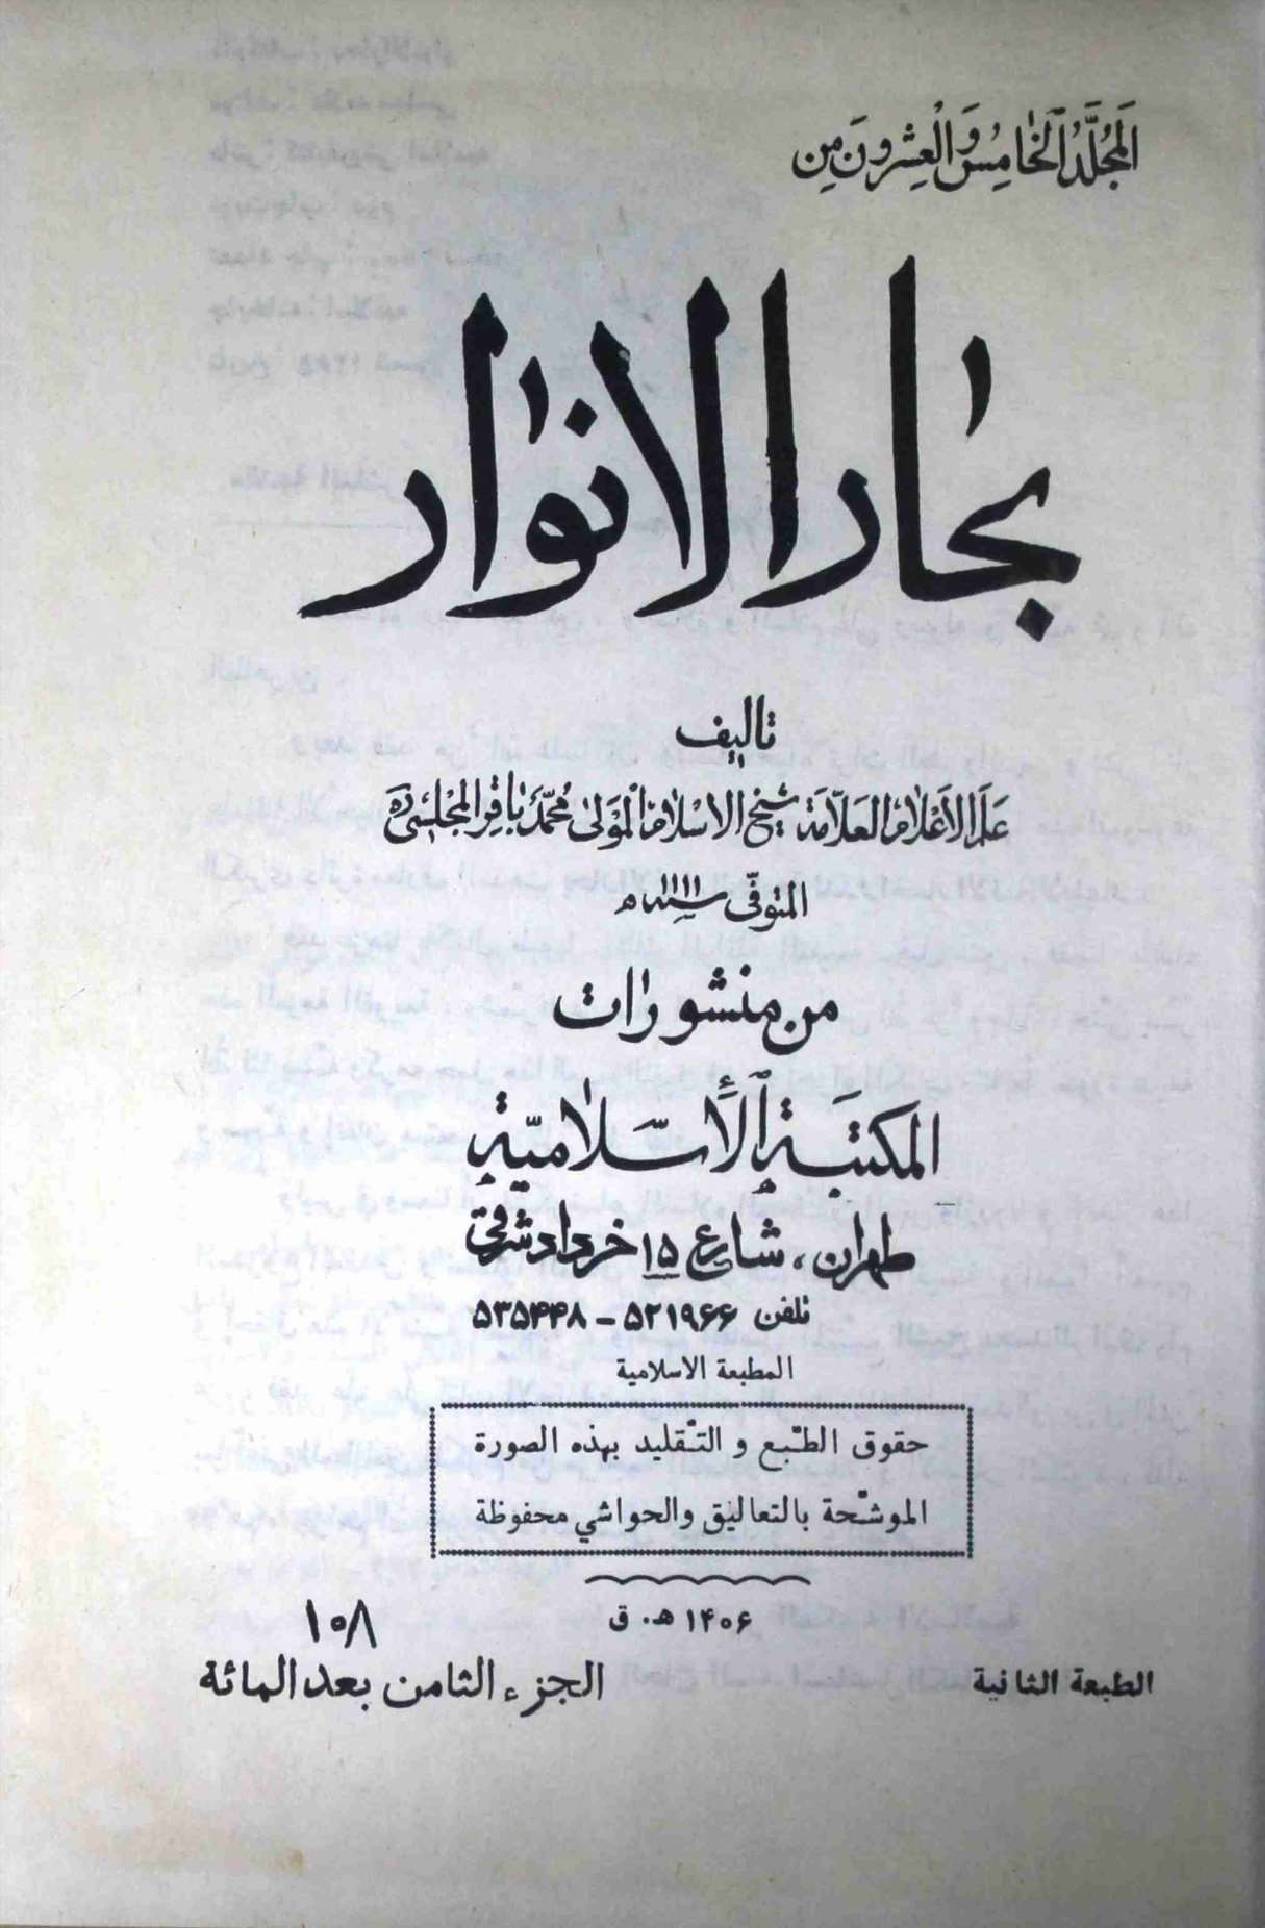 المجلد الخامس والعشرون من
بحار الانوار
تاليف
علم الاعلام العلامة شيخ الاسلام المولى محمد باقر المجلسي ره
المتوفى سنة ۱۱۱۱ ه
من منشورات
المكتبة الأسلامية
طهران، شارع ۱۵ خرداد شرقی
تلفن ۵۲۱۹۶۶ – ۵۳۵۴۴۸
المطبعة الاسلامية
حقوق الطبع و التقليد بهذه الصورة
الموشحة بالتعاليق والحواشي محفوظة
۱۴۰۶ هـ. ق
۱۰۸
الطبعة الثانية
الجزء الثامن بعد المائة